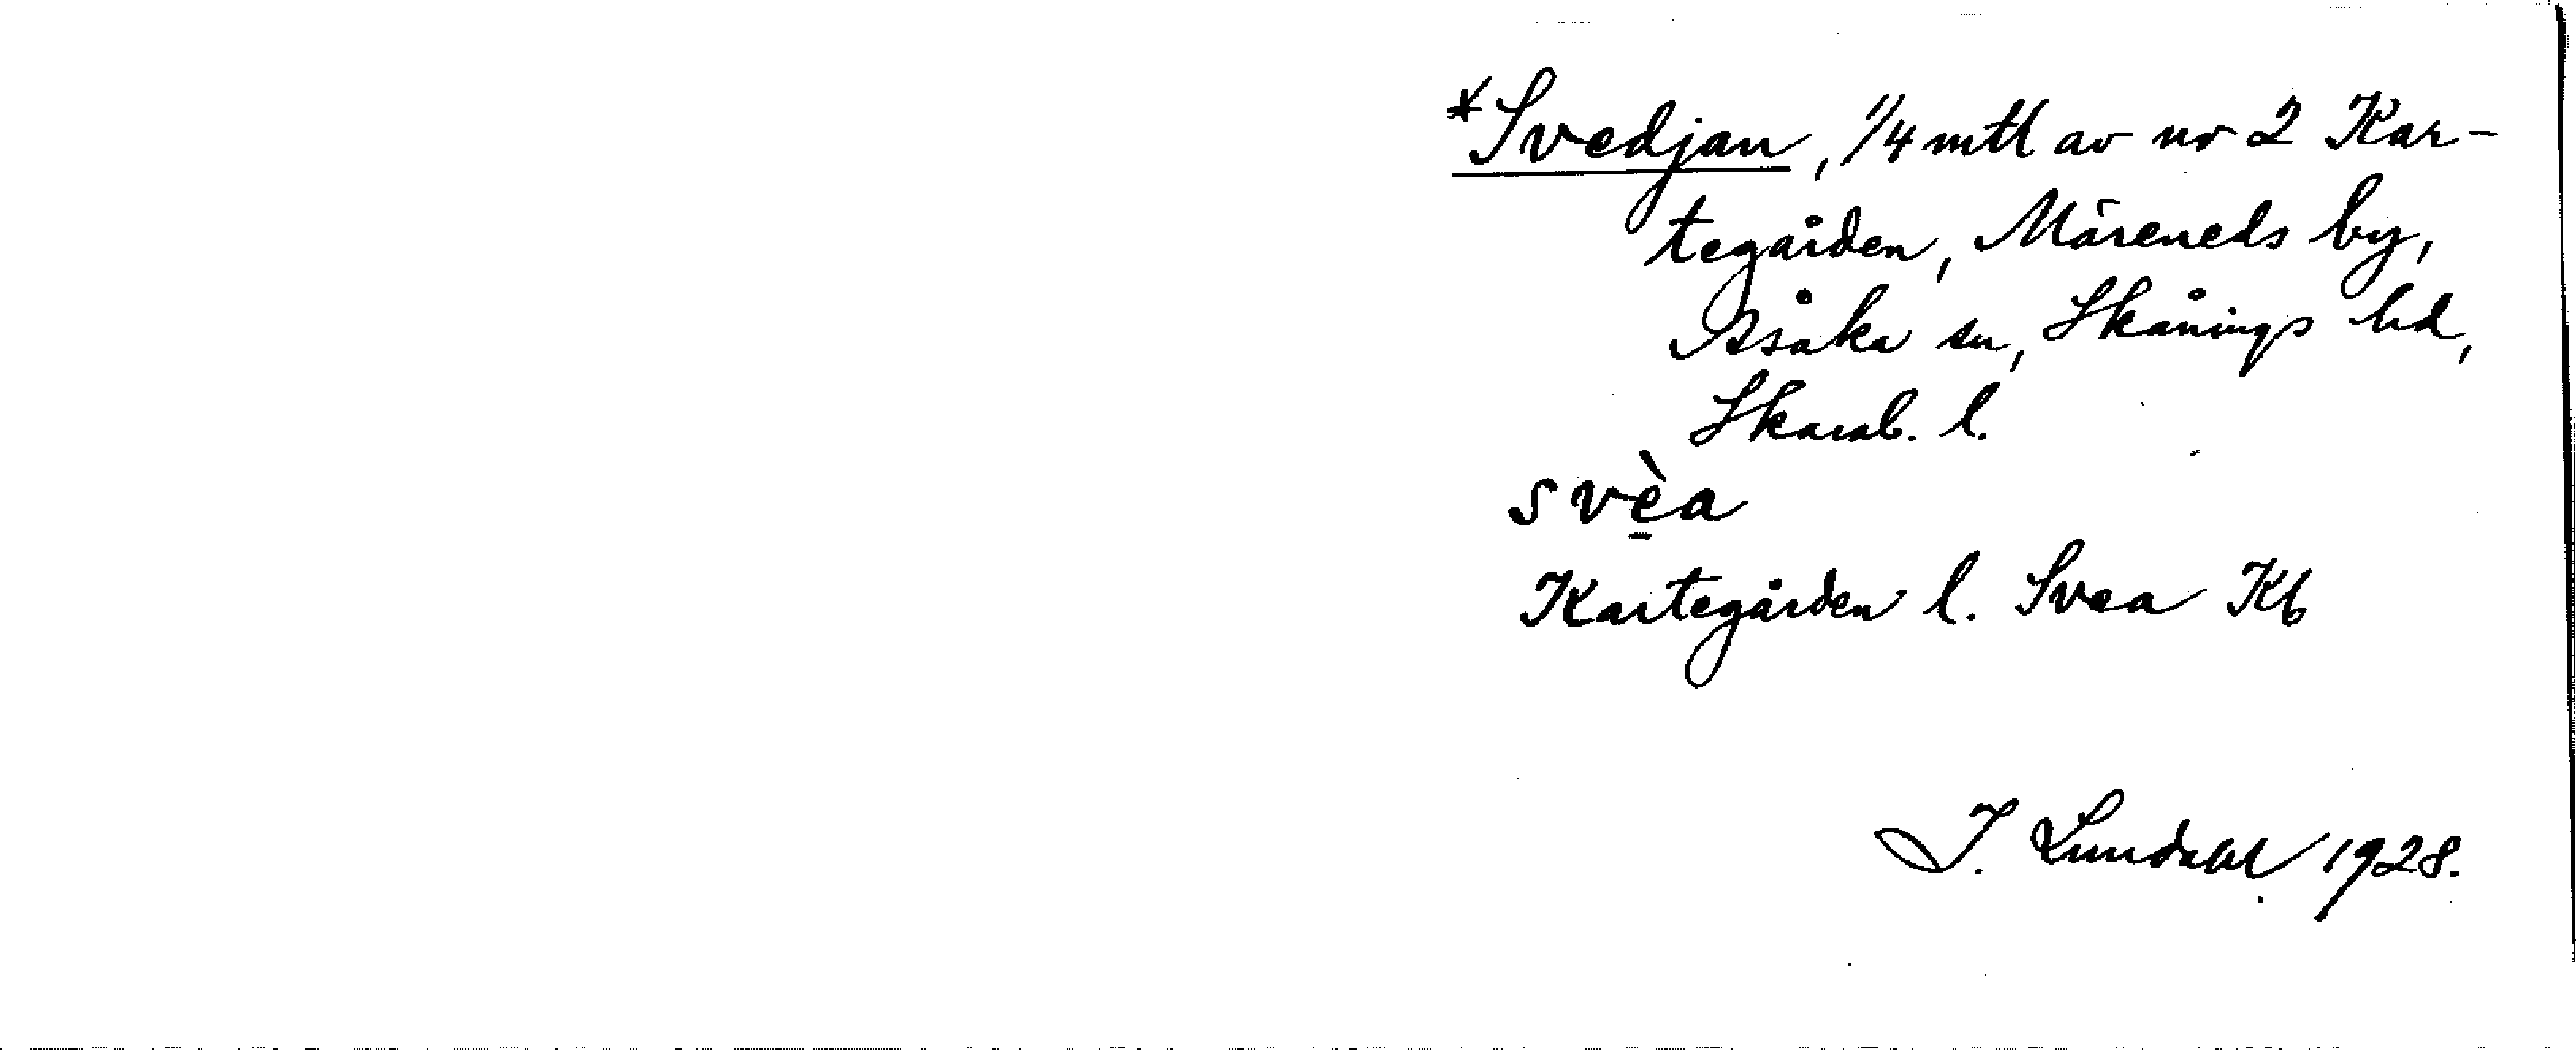 *Svedjan, 1/4 mtl av nr 2 Kar-
tegården, Måreneds by,
Åsaka sn, Skånings hd,
Skarab. l.
svèa
Kartegården l. Svea Kb
I. Lundahl 1928.